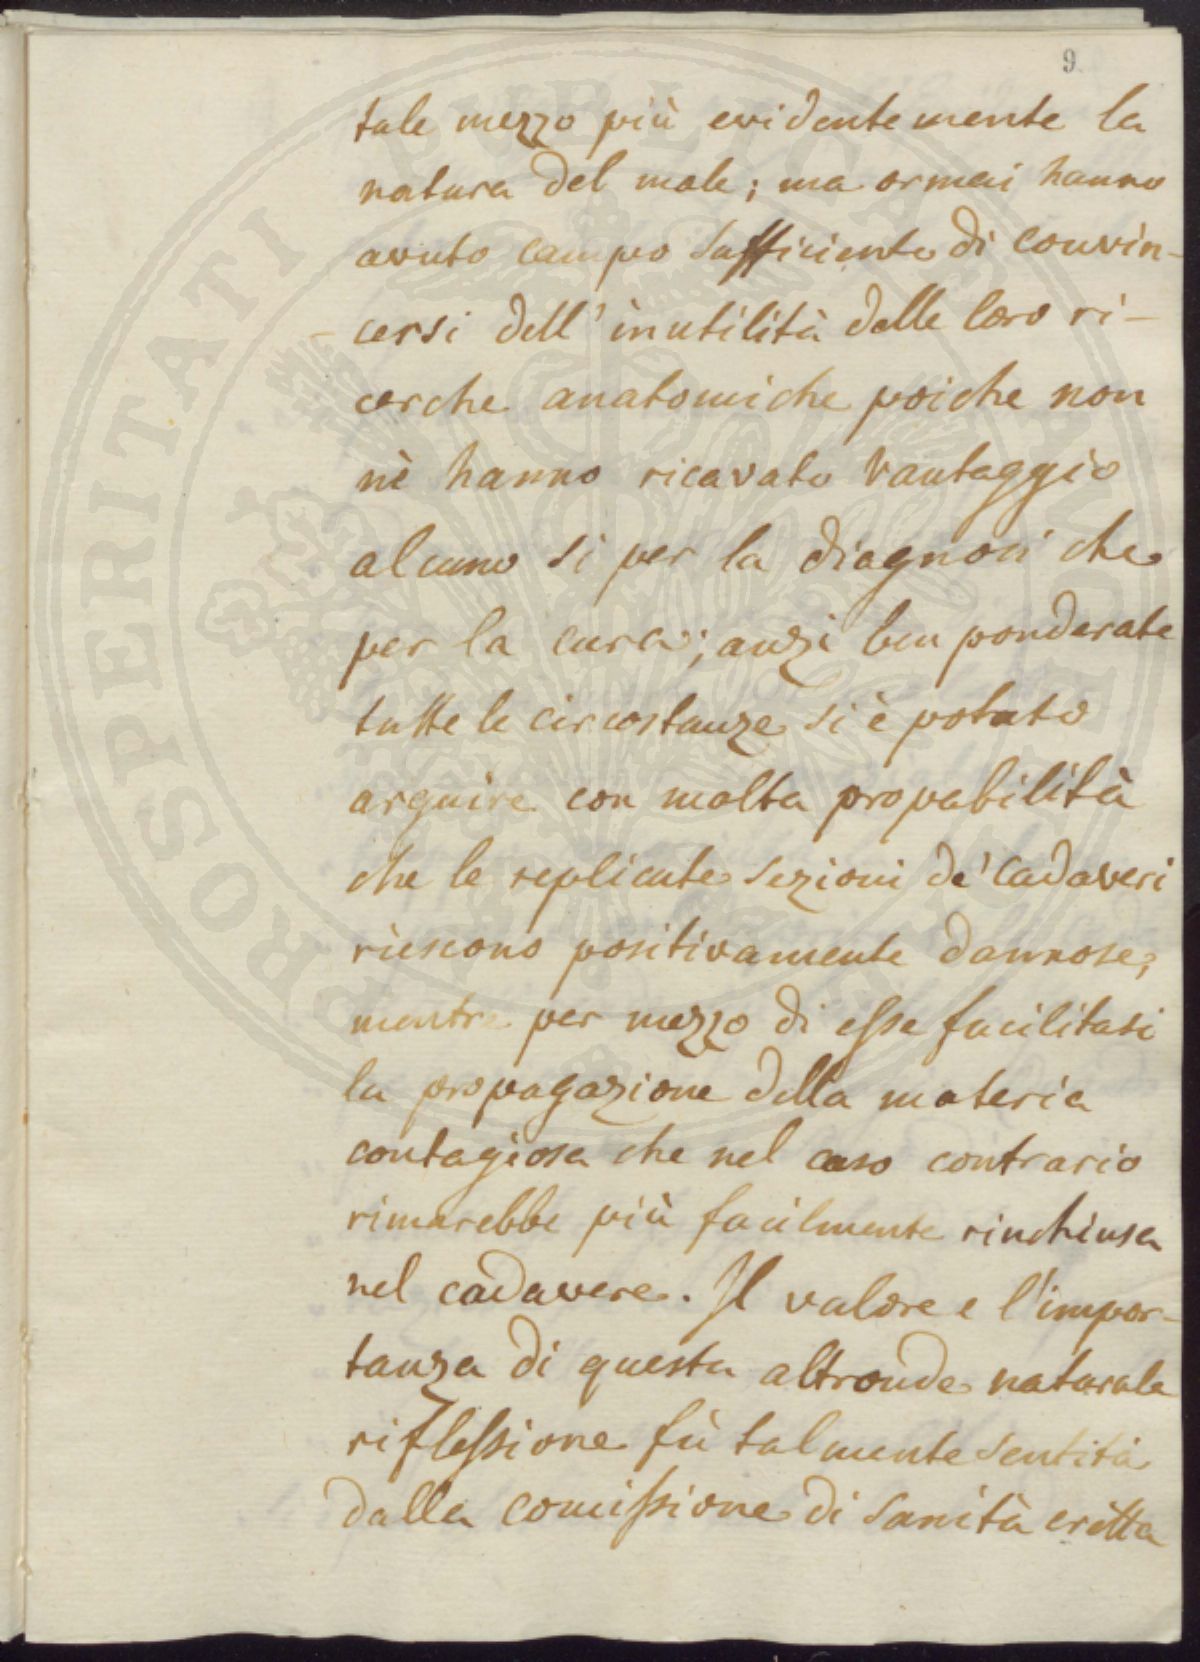 9
tale mezzo più evidentemente la
natura del male; ma ormai hanno
avuto campo sufficiente di convin-
-cersi dell'inutilità delle loro ri-
cerche anatomiche poiche non
nè hanno ricavato vantaggio
alcuno si per la diagnosi che
per la cura; anzi ben ponderate
tutte le circostanze si è potuto
arguire con molta propabilità
che le replicate sezioni de' cadaveri
riescono positivamente dannose;
mentre per mezzo di esse facilitasi
la propagazione della materia
contagiosa che nel caso contrario
rimarebbe più facilmente rinchiusa
nel cadavere. Il valore e l'impor-
tanza di questa altronde naturale
riflessione fù talmente sentita
dalla comissione di sanità eretta
PROSPERITATI PUBLICAE AUGENDAE